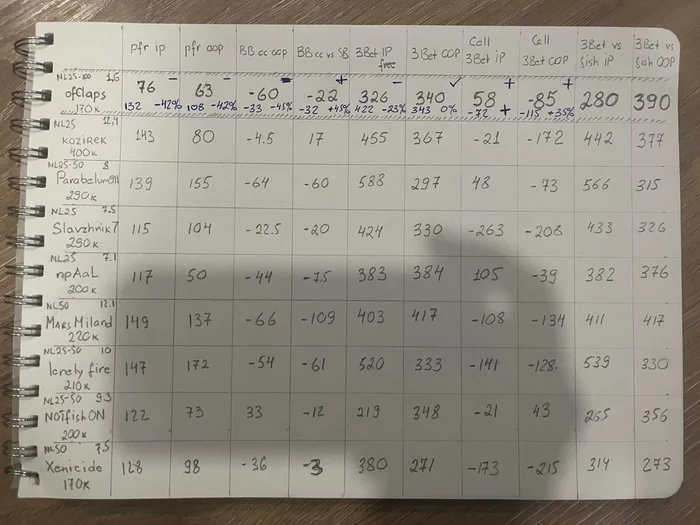 pfr ip pfr oop BB cc oop BB cc vs SB 3Bet IP free 3Bet OOP Call 3Bet iP Call 3Bet OOP 3Bet vs fish IP 3Bet vs fish OOP
NL25-100 1,6 − − − + − ✓ + +
opClaps 76 63 -60 -22 326 340 58 -85 280 390
170K 132 -42% 108 -42% -33 -45% -32 +45% 422 -23% 343 0% -72 + -115 +35%
NL25 12,4
kozirek 143 80 -4.5 17 455 367 -21 -172 442 377
400K
NL25-50 8
Parabelum911 139 155 -64 -60 588 297 48 -73 566 315
290K
NL25 7.5
Slavzhnik7 115 104 -22.5 -20 424 330 -263 -208 433 326
290K
NL25 7.1
npAaL 117 50 -44 -7.5 383 384 105 -39 382 376
200K
NL50 12.1
MARS Miland 149 137 -66 -109 403 417 -108 -134 411 417
220K
NL25-50 10
lonely fire 147 172 -54 -61 520 333 -141 -128 539 330
210K
NL25-50 9.3
NOTfishON 122 73 33 -12 219 348 -21 43 265 356
200K
NL50 7.5
Xenicide 128 98 -36 -3 380 271 -173 -215 314 273
170K